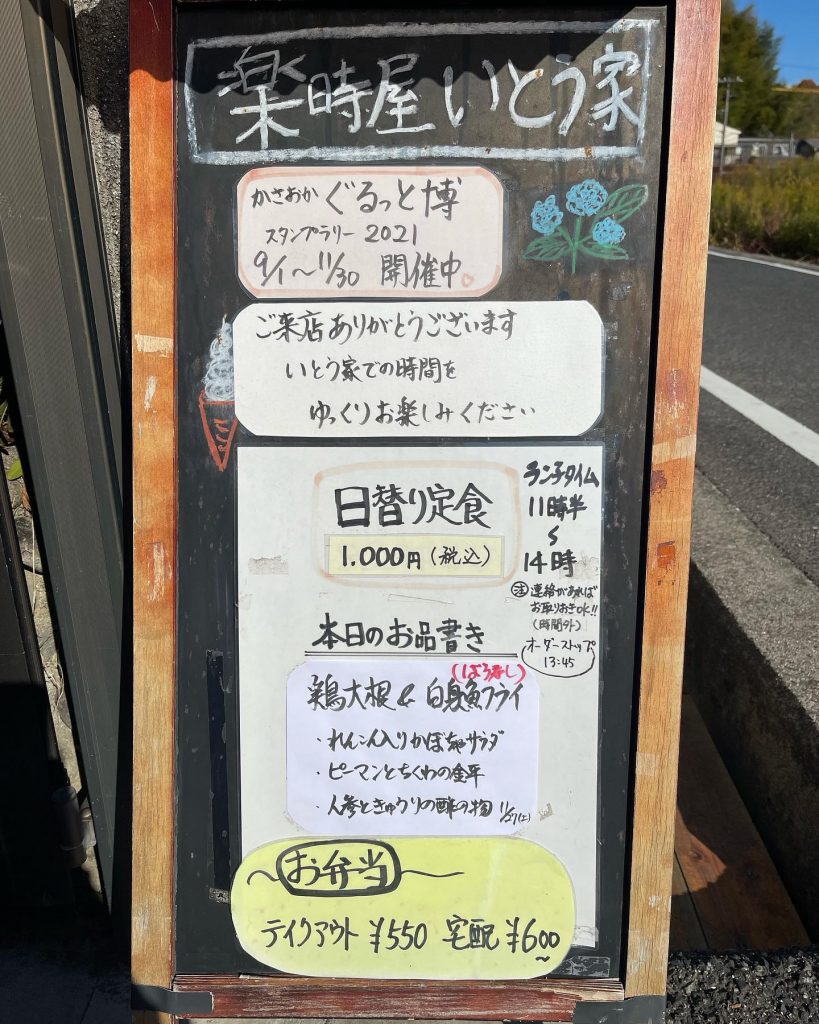 楽時屋いとう家
かさおか ぐるっと博
スタンプラリー 2021
9/1〜11/30 開催中
ご来店ありがとうございます
いとう家での時間を
ゆっくりお楽しみください
日替り定食
1.000円(税込)
ランチタイム
11時半
〜
14時
注 連絡があれば
お取りおきOK!!
(時間外)
オーダーストップ
13:45
本日のお品書き
(ほう寿し)
鶏大根 & 白身魚フライ
・れんこん入りかぼちゃサラダ
・ピーマンとちくわの金平
・人参ときゅうりの酢の物 11/27(土)
〜お弁当〜
テイクアウト ¥550 宅配 ¥600〜